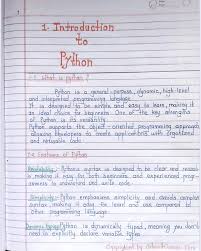 1. Introduction
to
Python
1.1. What is python ?
Python is a general-purpose, dynamic, high-level
and interpreted programming language.
It is designed to be simple and easy to learn, making it
an ideal choice for beginners. One of the key strengths
of Python is its versatility.
Python supports the object-oriented programming approach
allowing developers to create applications with organized
and reusable code.
Features of Python
Readability: Python's syntax is designed to be clear and
making it easy to both beginners and experienced
to understand and write code.
Simplicity: Python emphasizes simplicity and avoids complex
syntax, making it easy to learn and use compared to
other programming languages.
Dynamic typing: Python is dynamically typed, meaning you don't
need to explicitly declare variable
Copyrighted by